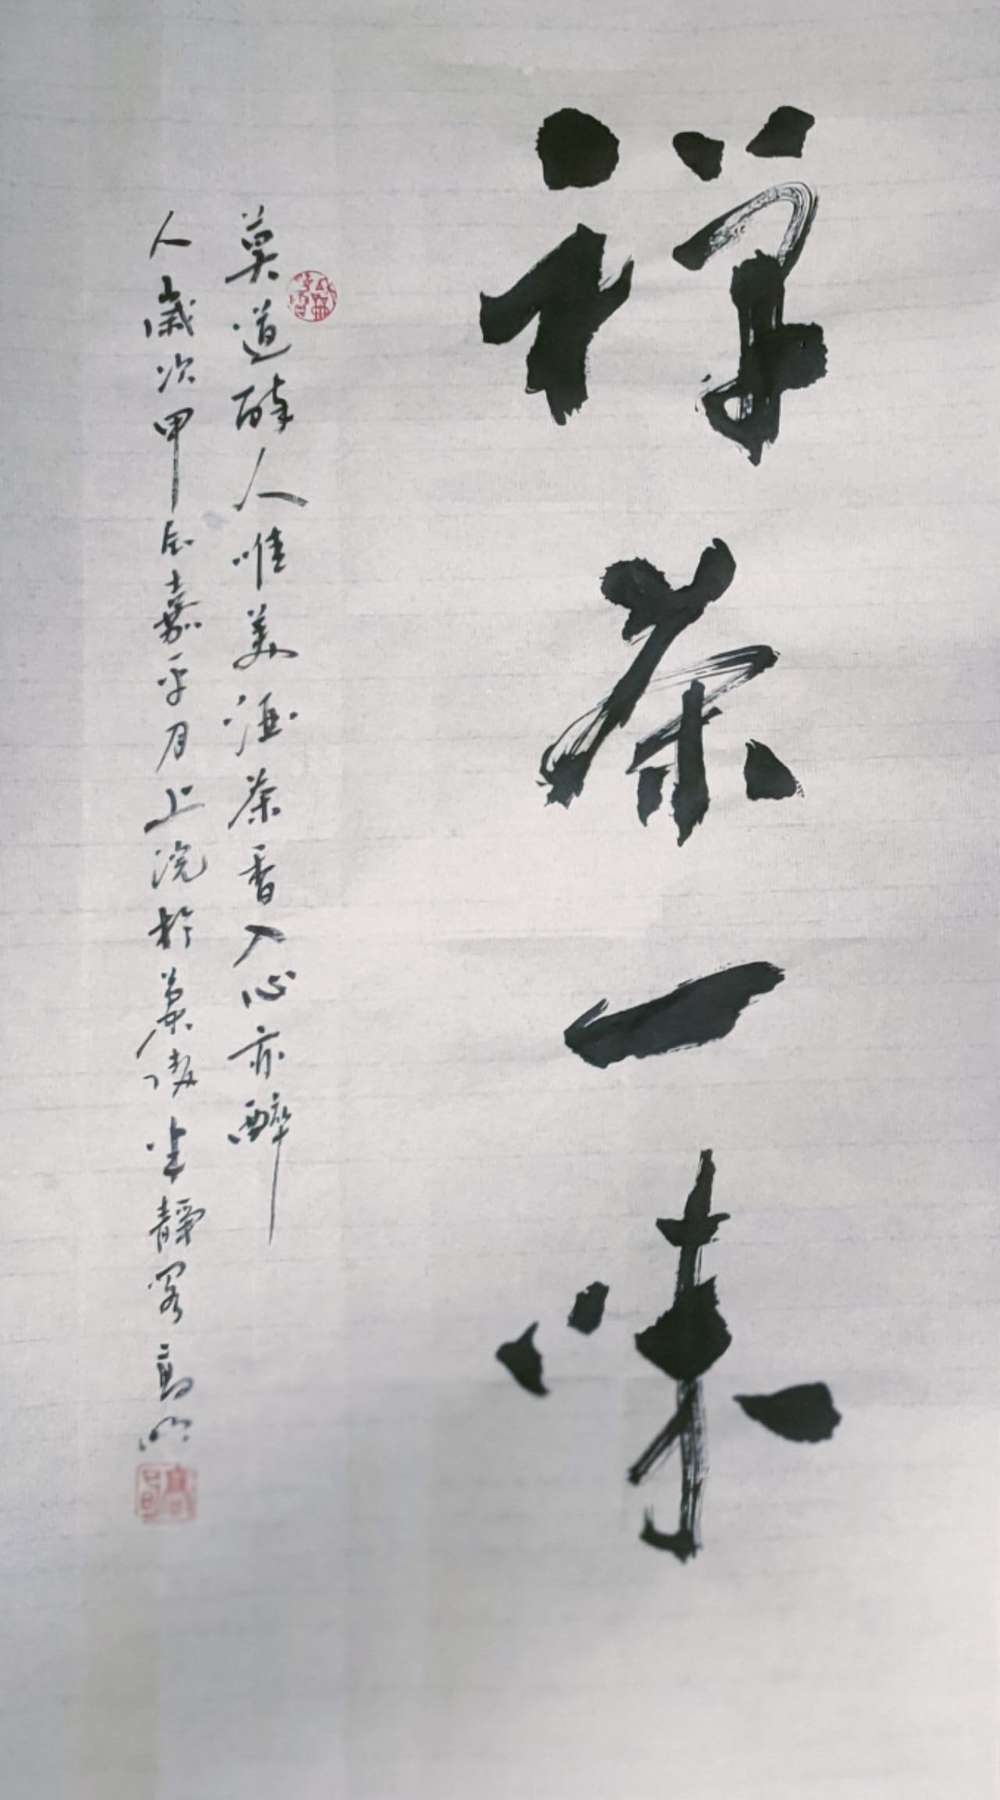 禅茶一味
莫道醉人唯美酒茶香入心亦醉
人歲次甲辰嘉平月上浣於
坐靜客高